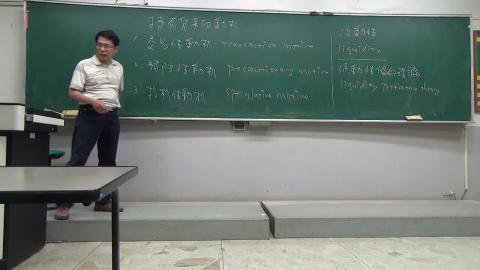 持有貨幣的動機
1. 交易性動機 transaction motive
2. 預防性動機 precautionary motive
3. 投機性動機 speculative motive
流動性
liquidity
流動性偏好理論
liquidity preference theory